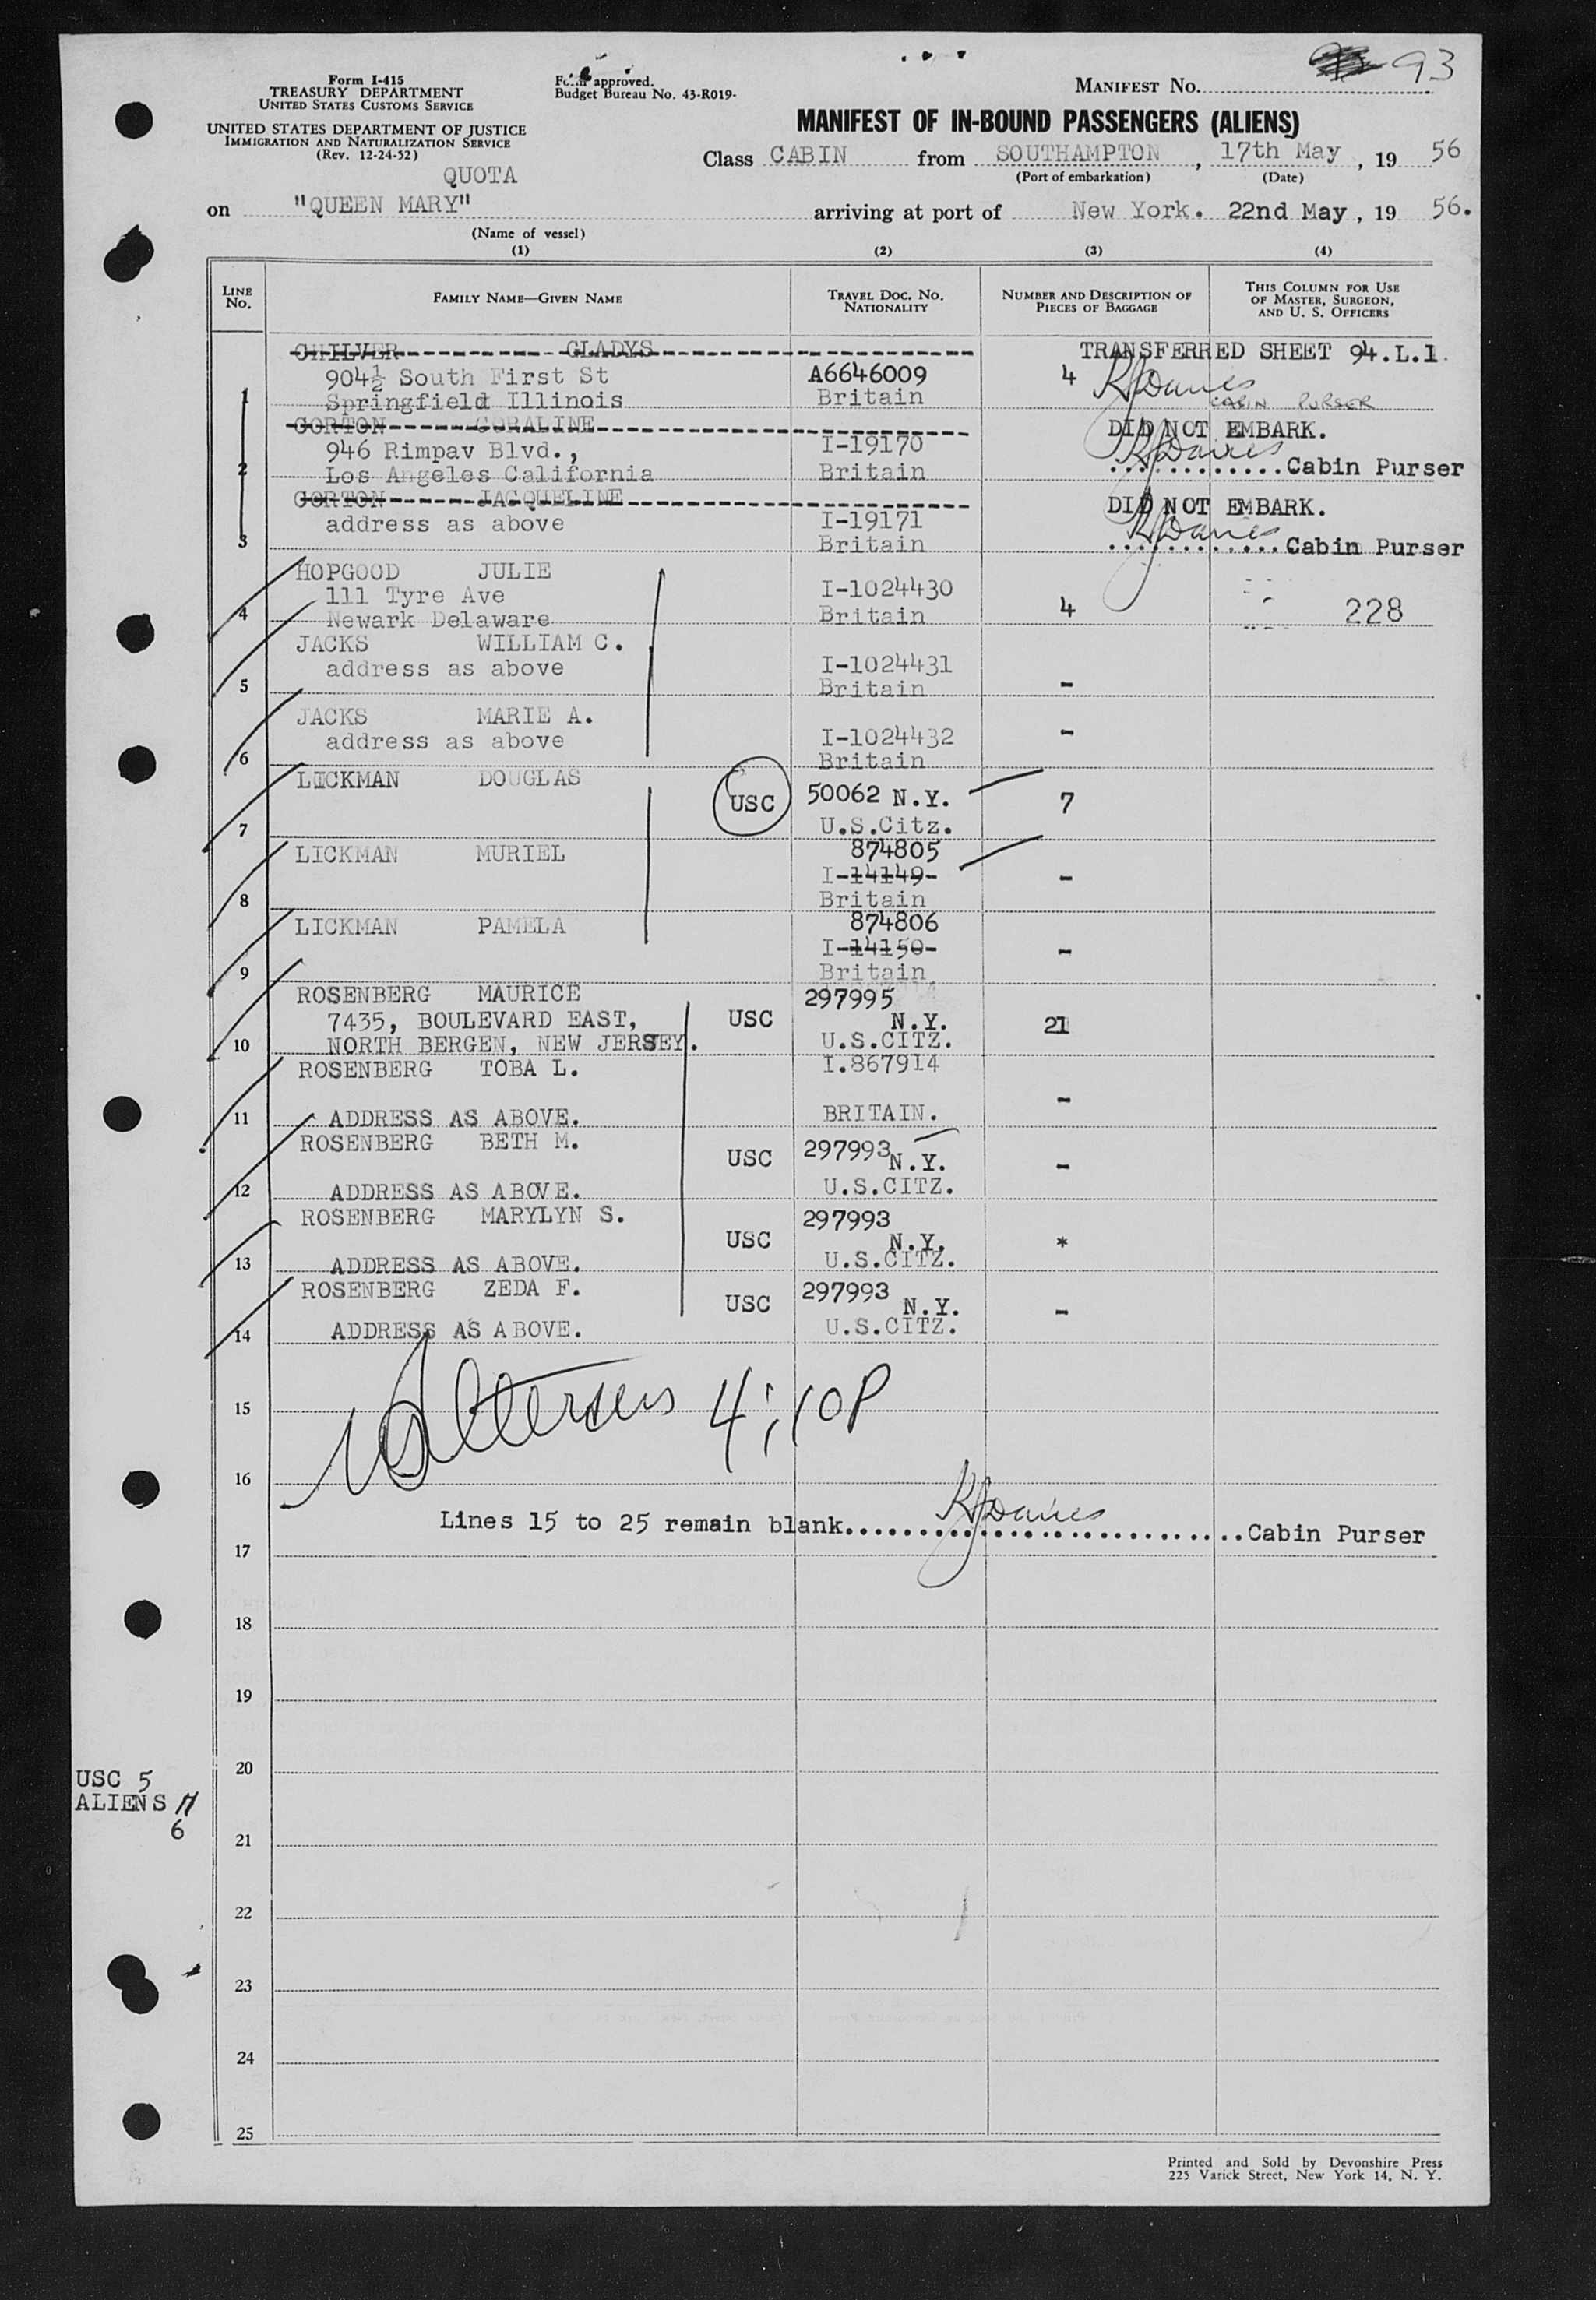 93
Form I-415
TREASURY DEPARTMENT
UNITED STATES CUSTOMS SERVICE
UNITED STATES DEPARTMENT OF JUSTICE
IMMIGRATION AND NATURALIZATION SERVICE
(Rev. 12-24-52)
Form approved.
Budget Bureau No. 43-R019-
MANIFEST NO.
MANIFEST OF IN-BOUND PASSENGERS (ALIENS)
Class CABIN from SOUTHAMPTON, 17th May, 19 56
(Port of embarkation) (Date)
QUOTA
on "QUEEN MARY" arriving at port of New York. 22nd May, 19 56.
(Name of vessel)
(1) (2) (3) (4)
LINE No. FAMILY NAME—GIVEN NAME TRAVEL DOC. NO. NATIONALITY NUMBER AND DESCRIPTION OF PIECES OF BAGGAGE THIS COLUMN FOR USE OF MASTER, SURGEON, AND U. S. OFFICERS
CHILVER GLADYS TRANSFERRED SHEET 94.L.1
904½ South First St A6646009 4 Davies
1 Springfield Illinois Britain CABIN PURSER
GORTON CORALINE DID NOT EMBARK.
946 Rimpav Blvd., I-19170 Davies
2 Los Angeles California Britain ............Cabin Purser
GORTON JACQUELINE DID NOT EMBARK.
address as above I-19171 Davies
3 Britain ............Cabin Purser
HOPGOOD JULIE
111 Tyre Ave I-1024430
4 Newark Delaware Britain 4 228
JACKS WILLIAM C.
address as above I-1024431
5 Britain -
JACKS MARIE A.
address as above I-1024432 -
6 Britain
LICKMAN DOUGLAS
USC 50062 N.Y. 7
7 U.S.Citz.
LICKMAN MURIEL 874805
I-14149- -
8 Britain
LICKMAN PAMELA 874806
I-14150- -
9 Britain
ROSENBERG MAURICE 297995
7435, BOULEVARD EAST, USC N.Y. 21
10 NORTH BERGEN, NEW JERSEY. U.S.CITZ.
ROSENBERG TOBA L. I.867914
-
11 ADDRESS AS ABOVE. BRITAIN.
ROSENBERG BETH M. 297993
USC N.Y. -
12 ADDRESS AS ABOVE. U.S.CITZ.
ROSENBERG MARYLYN S. 297993
USC N.Y. *
13 ADDRESS AS ABOVE. U.S.CITZ.
ROSENBERG ZEDA F. 297993
USC N.Y. -
14 ADDRESS AS ABOVE. U.S.CITZ.
15 4:10P
16
Lines 15 to 25 remain blank............Davies............Cabin Purser
17
18
19
20
USC 5
ALIENS
6
21
22
23
24
25
Printed and Sold by Devonshire Press
225 Varick Street, New York 14, N. Y.